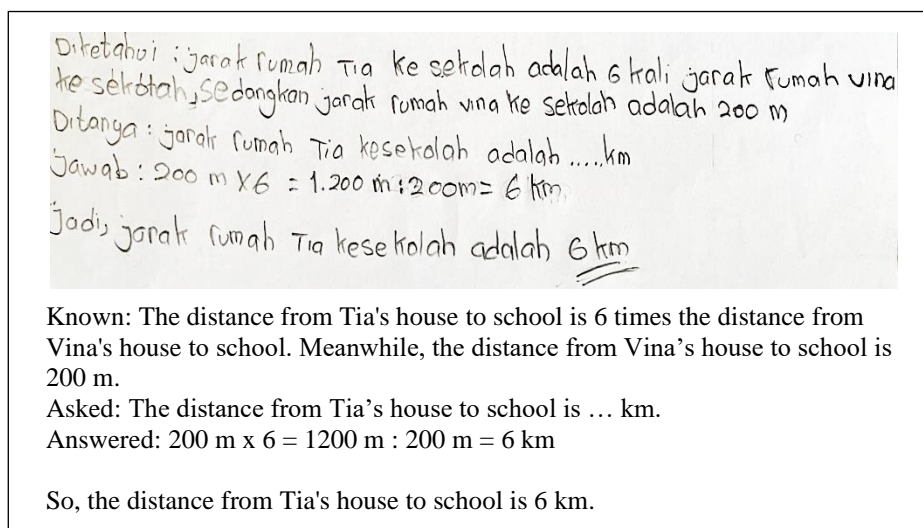 Diketahui : jarak rumah Tia ke sekolah adalah 6 kali jarak rumah vina
ke sekolah, sedangkan jarak rumah vina ke sekolah adalah 200 m
Ditanya : jarak rumah Tia kesekolah adalah ..... km
Jawab : 200 m x 6 = 1.200 m : 200m = 6 km
Jadi, jarak rumah Tia kesekolah adalah 6 km
Known: The distance from Tia's house to school is 6 times the distance from
Vina's house to school. Meanwhile, the distance from Vina’s house to school is
200 m.
Asked: The distance from Tia’s house to school is … km.
Answered: 200 m x 6 = 1200 m : 200 m = 6 km
So, the distance from Tia's house to school is 6 km.